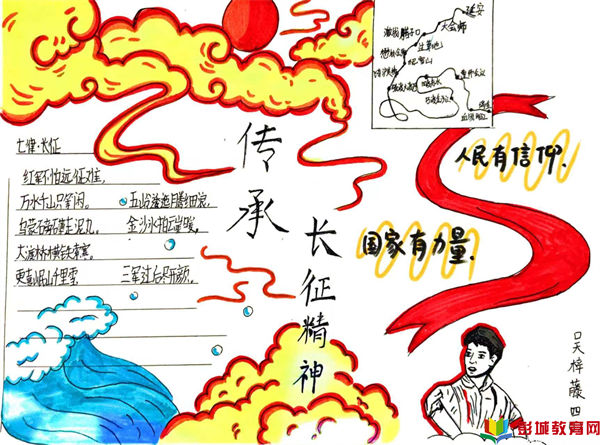 七律·长征
红军不怕远征难,
万水千山只等闲。
五岭逶迤腾细浪,
乌蒙磅礴走泥丸。
金沙水拍云崖暖,
大渡桥横铁索寒。
更喜岷山千里雪,
三军过后尽开颜。
传承
长征精神
延安
大会师
腊子口
过草地
爬雪山
人民有信仰.
国家有力量.
吴梓藤
四
彭城教育网